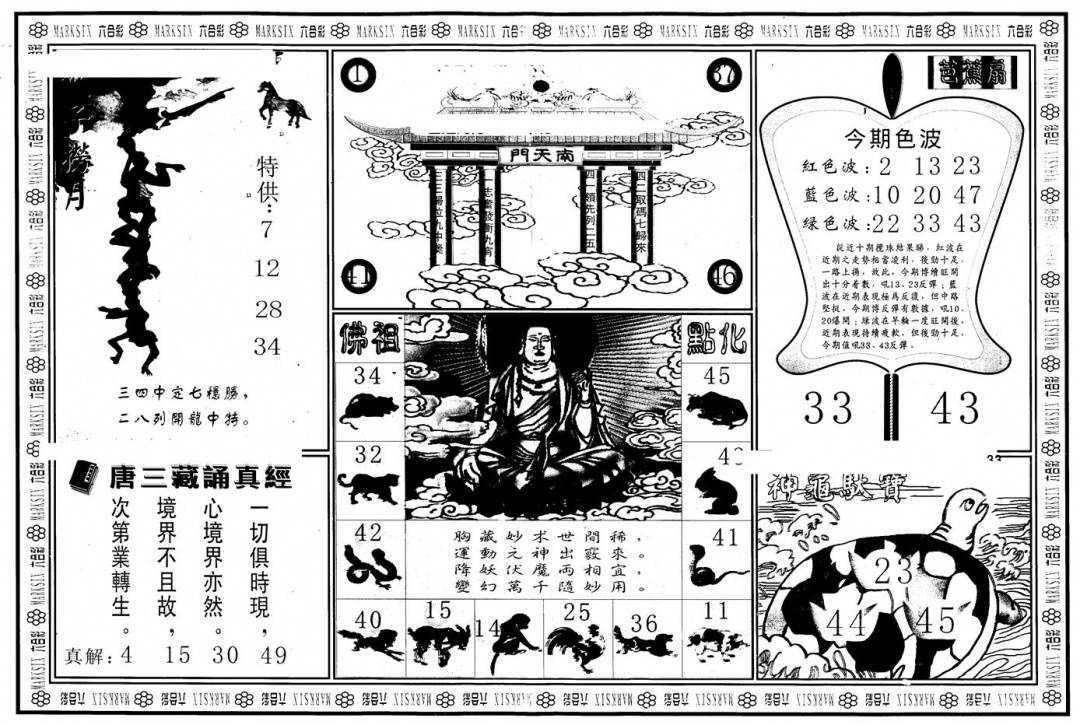 MARKSIX 六合彩 MARKSIX 六合彩 MARKSIX 六合彩 MARKSIX 六合彩 MARKSIX 六合彩 MARKSIX 六合彩 MARKSIX 六合彩 MARKSIX 六合彩 MARKSIX 六合彩 MARKSIX 六合彩
撈月
特供:
7
12
28
34
三四中定七穩勝，
二八列開龍中特。
唐三藏誦真經
一切俱時現，
心境界亦然。
境界不且故，
次第業轉生。
真解: 4 15 30 49
1
37
南天門
志奮發衝九宵
四一領先列二五
四一取碼七歸來
41
46
佛祖
點化
34
45
32
42
41
40
15
14
25
36
11
胸藏妙术世間稀，
運動元神出竅來。
降妖伏魔兩相宜，
變幻萬千隨妙用。
芭蕉扇
今期色波
紅色波: 2 13 23
藍色波: 10 20 47
綠色波: 22 33 43
從近十期攪珠結果睇，紅波在
近期之走勢相當凌利，後勁十足，
一路上揚，故此，今期博續旺開
出十分着數，吼13、23反彈；藍
波在近期表現極為反復，但中路
堅挺，今期博反彈有數據，吼10、
20爆開；綠波在早輪一度旺開後，
近期表現持續疲軟，但後勁十足，
今期值吼33、43反彈。
33 43
神龜馱寶
23
44
45